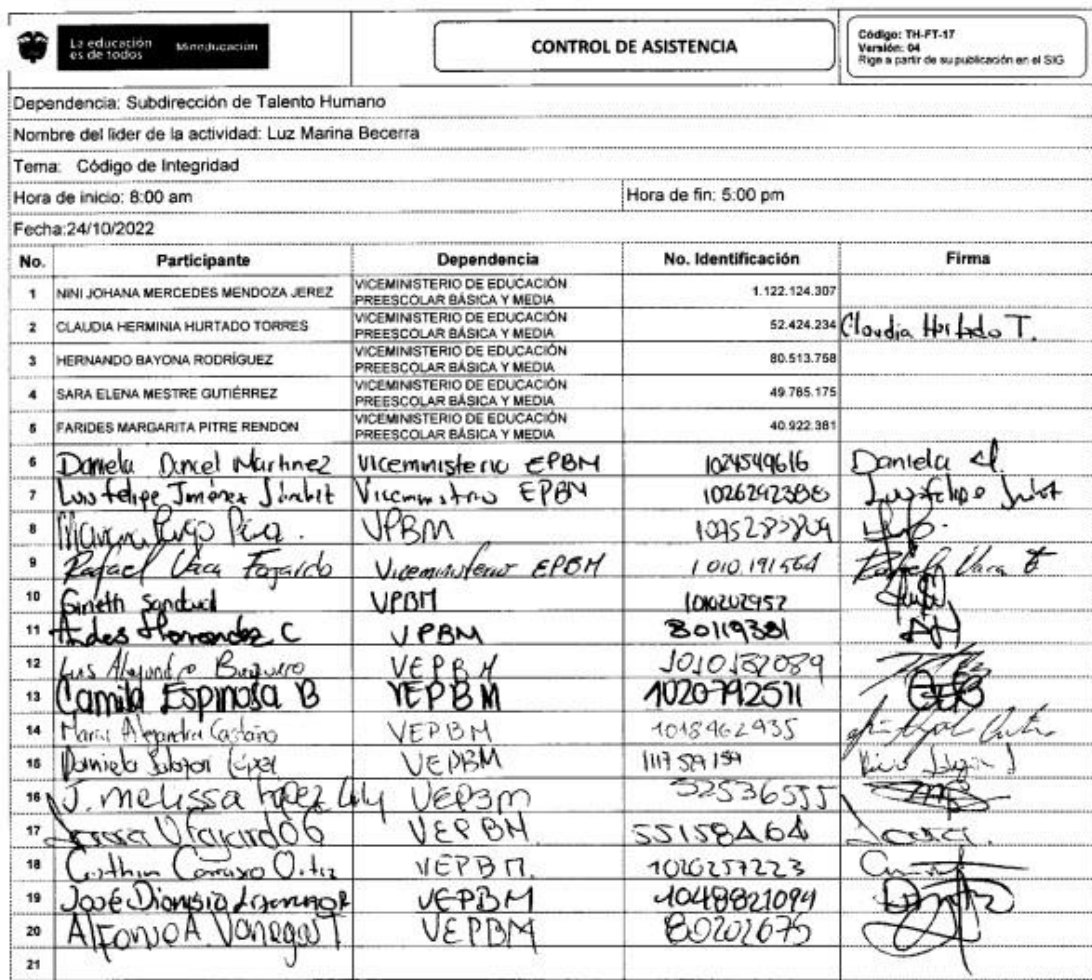 La educación es de todos
Mineducación
CONTROL DE ASISTENCIA
Código: TH-FT-17
Versión: 04
Rige a partir de su publicación en el SIG
Dependencia: Subdirección de Talento Humano
Nombre del lider de la actividad: Luz Marina Becerra
Tema: Código de Integridad
Hora de inicio: 8:00 am Hora de fin: 5:00 pm
Fecha:24/10/2022
No. Participante Dependencia No. Identificación Firma
1 NINI JOHANA MERCEDES MENDOZA JEREZ VICEMINISTERIO DE EDUCACIÓN PREESCOLAR BÁSICA Y MEDIA 1.122.124.307
2 CLAUDIA HERMINIA HURTADO TORRES VICEMINISTERIO DE EDUCACIÓN PREESCOLAR BÁSICA Y MEDIA 52.424.234 Claudia Hurtado T.
3 HERNANDO BAYONA RODRÍGUEZ VICEMINISTERIO DE EDUCACIÓN PREESCOLAR BÁSICA Y MEDIA 80.513.758
4 SARA ELENA MESTRE GUTIÉRREZ VICEMINISTERIO DE EDUCACIÓN PREESCOLAR BÁSICA Y MEDIA 49.765.175
5 FARIDES MARGARITA PITRE RENDON VICEMINISTERIO DE EDUCACIÓN PREESCOLAR BÁSICA Y MEDIA 40.922.381
6 Daniela Martinez Viceministerio EPBM 1024549616 Daniela
7 Luis felipe Jiménez EPBM Luis felipe
8 VPBM
9 Rafael Vaca Fajardo Viceministerio EPBM 1010.191564 Rafael Vaca F
10 Gineth Sandoval VPBM 1010202957
11 Hernandez C VPBM 80119381
12 Luis Alejandro VEPBM 1010182089
13 Camila Espinosa B VEPBM 1020792511
14 Maria Alejandra Castaño VEPBM 1018462935
15 Daniela López VEPBM
16 J. melissa López VEPBM 52536555
17 VEPBM 55158464
18 Ortiz VEPBM. 1026257223
19 José Dionisio VEPBM 1048821094
20 Alfonso A. Vanegas T VEPBM 80202675
21